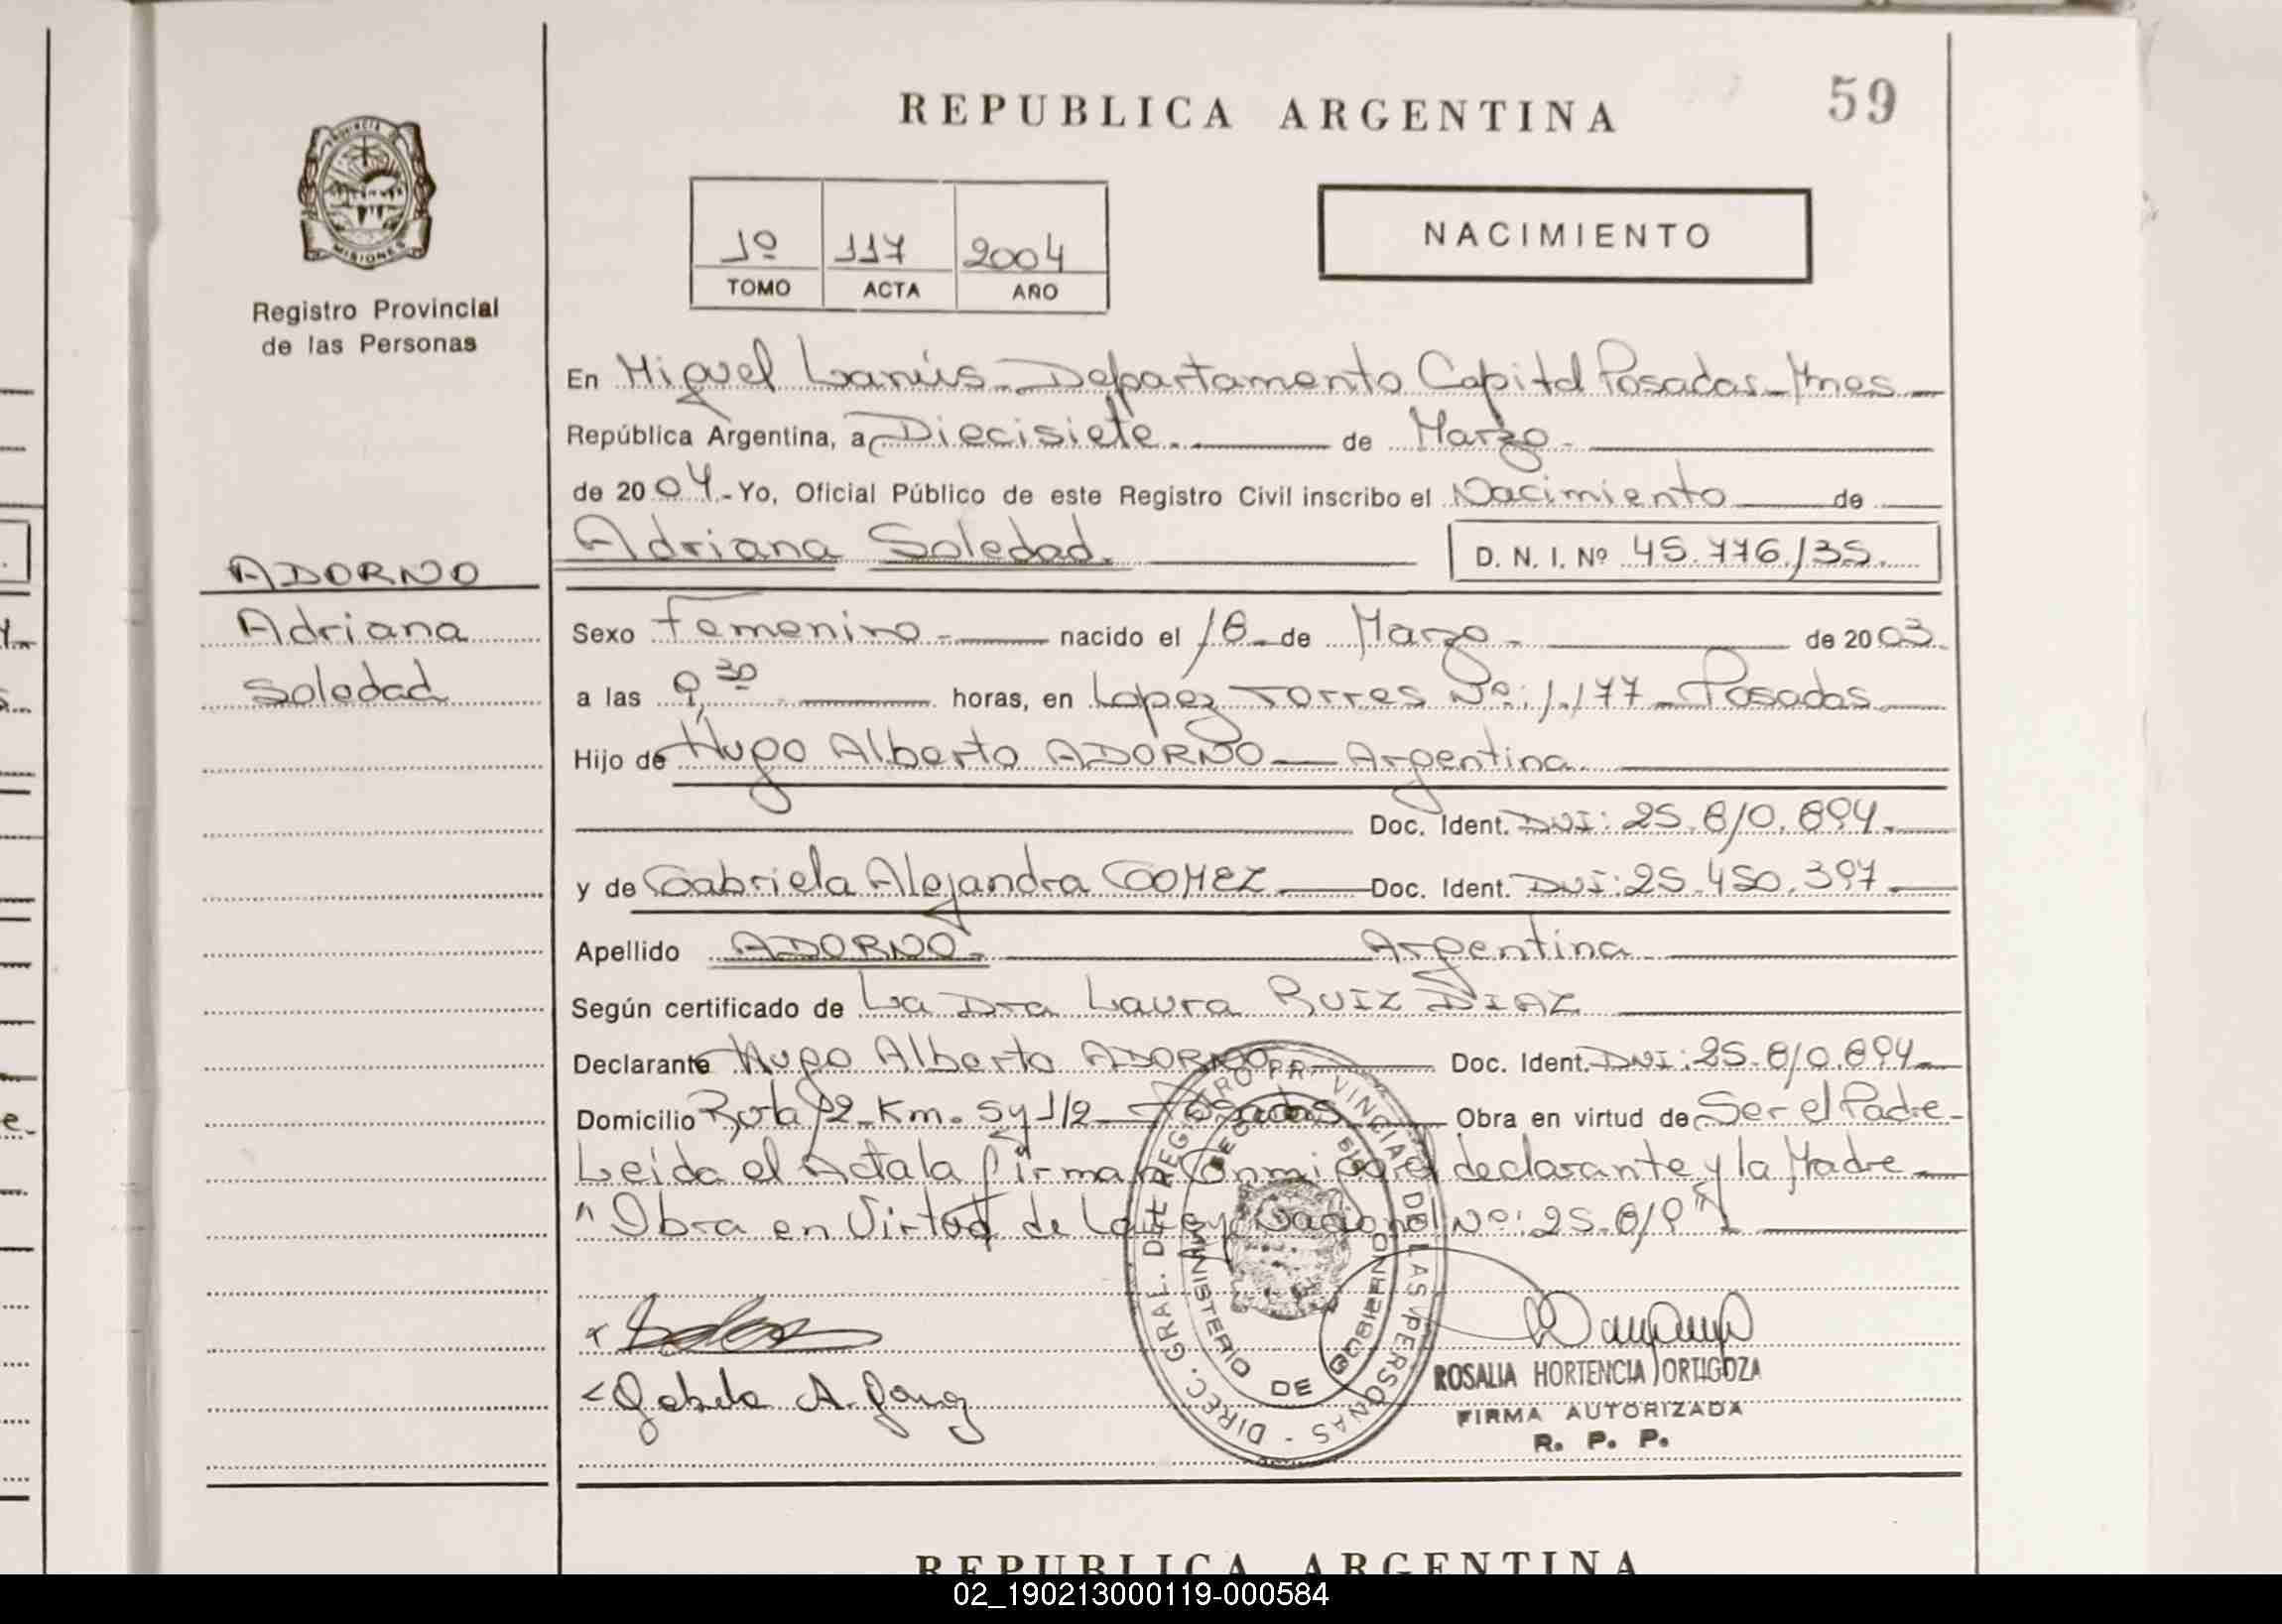 REPUBLICA ARGENTINA
59
PROVINCIA DE MISIONES
Registro Provincial
de las Personas
1º 117 2004
TOMO ACTA AÑO
NACIMIENTO
En Miguel Lanús - Departamento Capital Posadas - Mnes -
República Argentina, a Diecisiete. de Marzo -
de 2004 - Yo, Oficial Público de este Registro Civil inscribo el Nacimiento de
Adriana Soledad.
D. N. I. Nº 45.776.135.
ADORNO
Adriana
Soledad
Sexo Femenino - nacido el 18 - de Marzo - de 2003.
a las 9,30 horas, en Lopez Torres Nº: 1.177 - Posadas
Hijo de Hugo Alberto ADORNO - Argentina.
Doc. Ident. DNI: 25.810.894.
y de Gabriela Alejandra GOMEZ Doc. Ident. DNI: 25.450.397
Apellido ADORNO - Argentina
Según certificado de La Dra Laura RUIZ DIAZ
Declarante Hugo Alberto ADORNO Doc. Ident. DNI: 25.810.894
Domicilio Ruta 12 - Km. 5 y 1/2 - Posadas Obra en virtud de Ser el Padre -
Leida el Acta la firman Conmigo el declarante y la Madre
" Obra en Virtud de La Ley Nacional Nº: 25.819"
DIREC. GRAL. DEL REGISTRO PROVINCIAL DE LAS PERSONAS -
MINISTERIO DE GOBIERNO
ROSALIA HORTENCIA ORTIGOZA
FIRMA AUTORIZADA
R. P. P.
REPUBLICA ARGENTINA
02_190213000119-000584